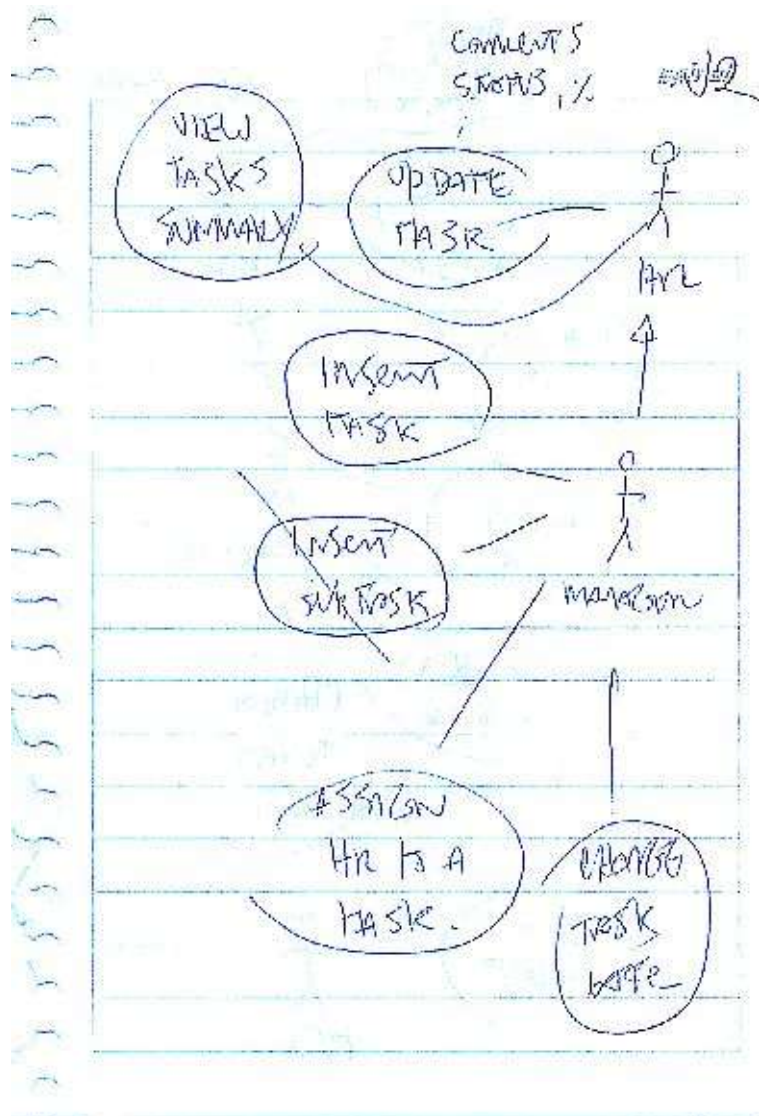 COMMENTS
STATUS, %
VIEW
TASKS
SUMMARY
UPDATE
TASK
HR
INSERT
TASK
INSERT
SUBTASK
MANAGER
ASSIGN
HR TO A
TASK.
CHANGE
TASK
DATE